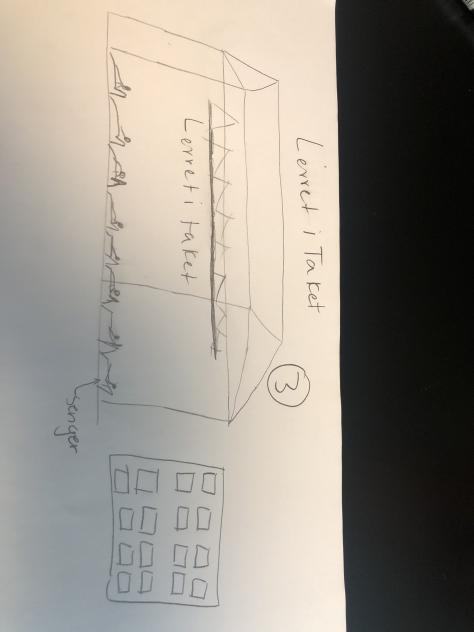 Lerret i Taket
3
Lerret i taket
senger